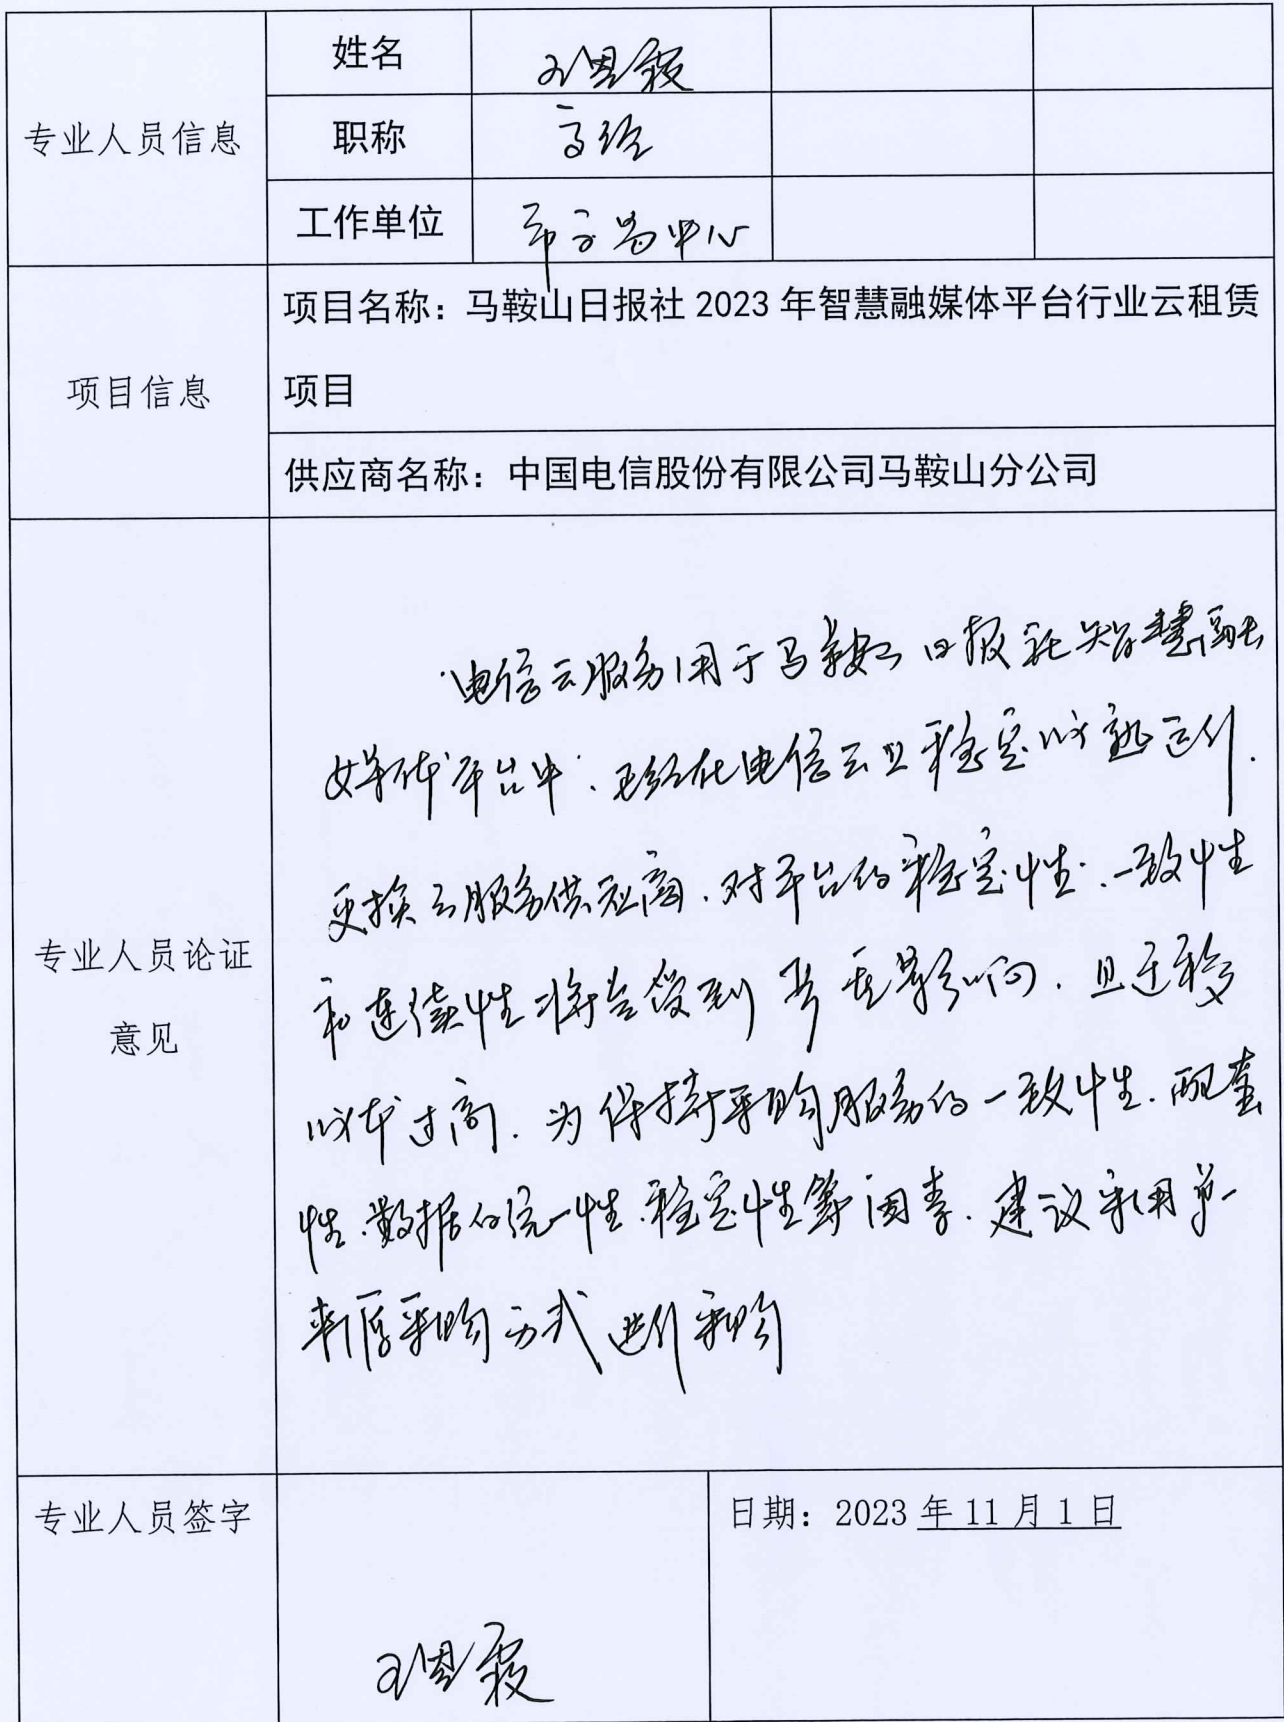 专业人员信息
姓名
职称
高经
工作单位
市交易中心
项目信息
项目名称：马鞍山日报社 2023 年智慧融媒体平台行业云租赁
项目
供应商名称：中国电信股份有限公司马鞍山分公司
专业人员论证
意见
电信云服务用于马鞍山日报社智慧融
媒体平台中，已经在电信云上稳定成熟运行.
更换云服务供应商，对平台的稳定性、一致性
和连续性将会受到严重影响，且迁移
成本过高．为保持采购服务的一致性、配套
性、数据的统一性、稳定性等因素．建议采用单一
来源采购方式进行采购
专业人员签字
日期：2023 年 11 月 1 日